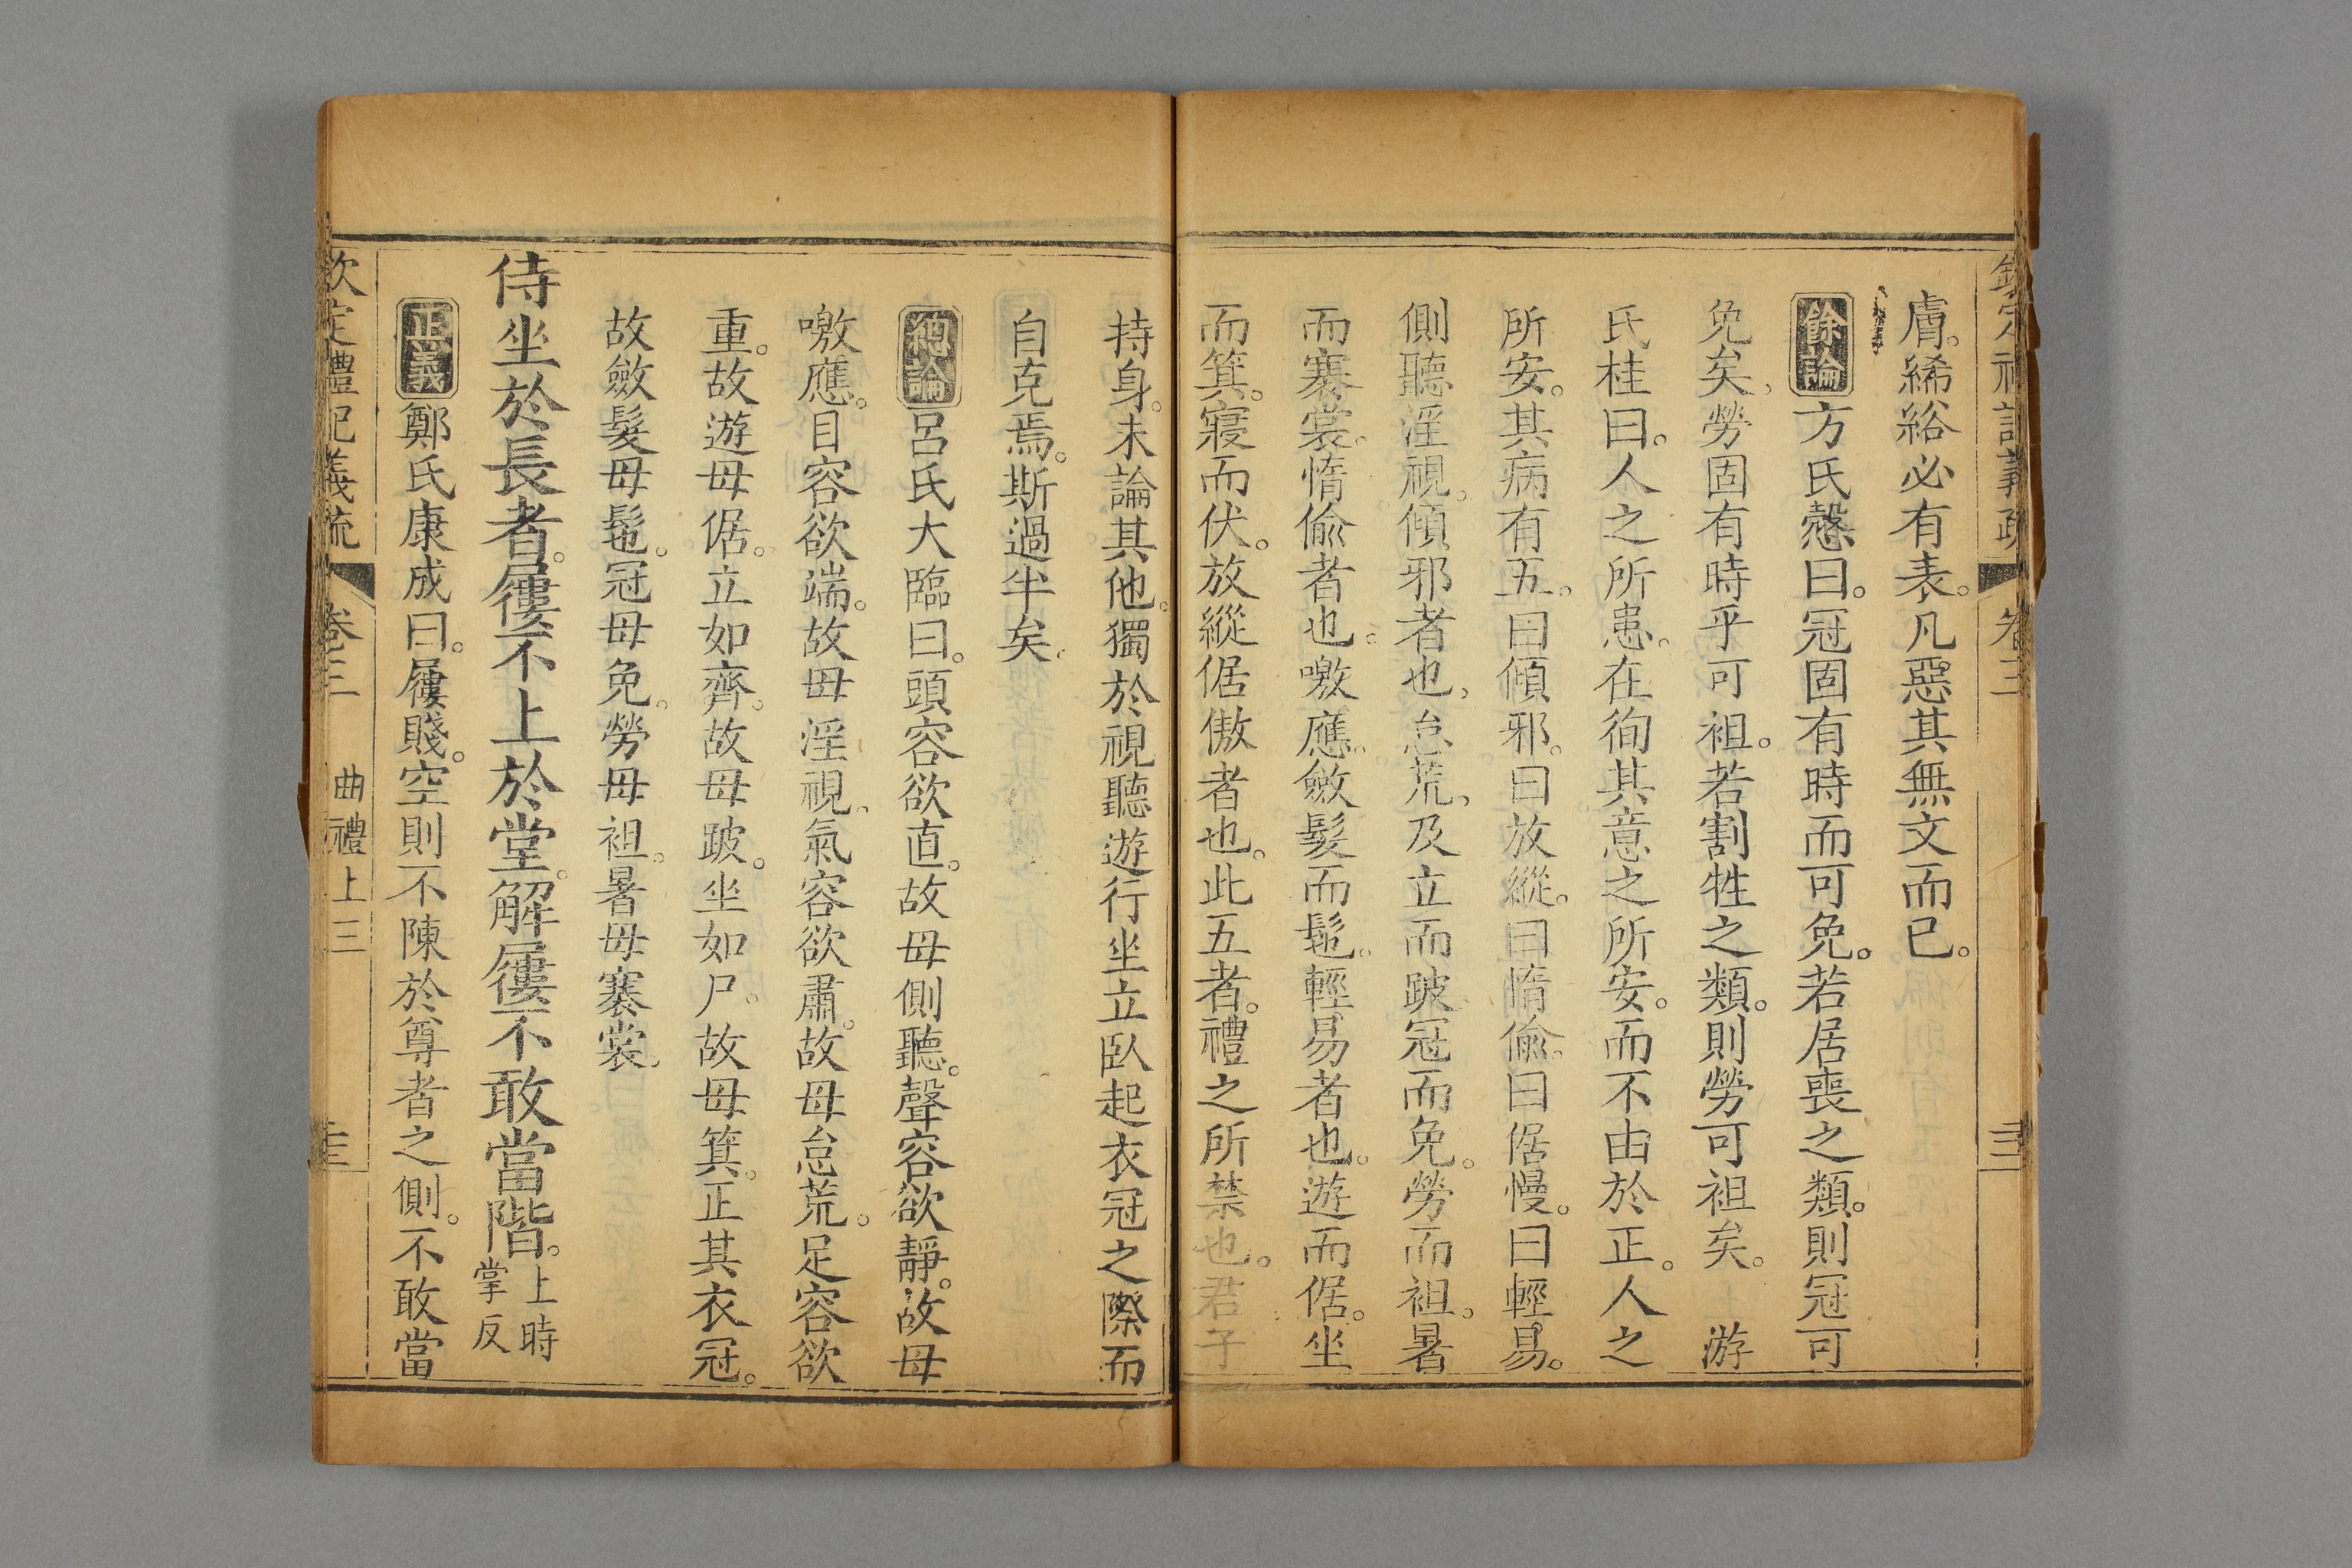 膚。絺綌必有表。凡惡其無文而已。
餘論方氏慤曰。冠固有時而可免。若居喪之類。則冠可
免矣。勞固有時乎可袒。若割牲之類。則勞可袒矣。 游
氏桂曰。人之所患。在徇其意之所安。而不由於正。人之
所安。其病有五。曰傾邪。曰放縱。曰惰偷。曰倨慢。曰輕易。
側聽淫視。傾邪者也。怠荒。及立而跛。冠而免。勞而袒。暑
而褰裳。惰偷者也。噭應。斂髮而髢。輕易者也。遊而倨。坐
而箕。寢而伏。放縱倨傲者也。此五者。禮之所禁也。君子
持身。未論其他。獨於視聽遊行坐立臥起衣冠之際而
自克焉。斯過半矣。
總論呂氏大臨曰。頭容欲直。故毋側聽。聲容欲靜。故毋
噭應。目容欲端。故毋淫視。氣容欲肅。故毋怠荒。足容欲
重。故遊毋倨。立如齊。故毋跛。坐如尸。故毋箕。正其衣冠。
故斂髮毋髢。冠毋免。勞毋袒。暑毋褰裳。
侍坐於長者。屨不上於堂。解屨不敢當階。上時掌反
正義鄭氏康成曰。屨賤。空則不陳於尊者之側。不敢當
欽定禮記義疏 卷三 曲禮上三